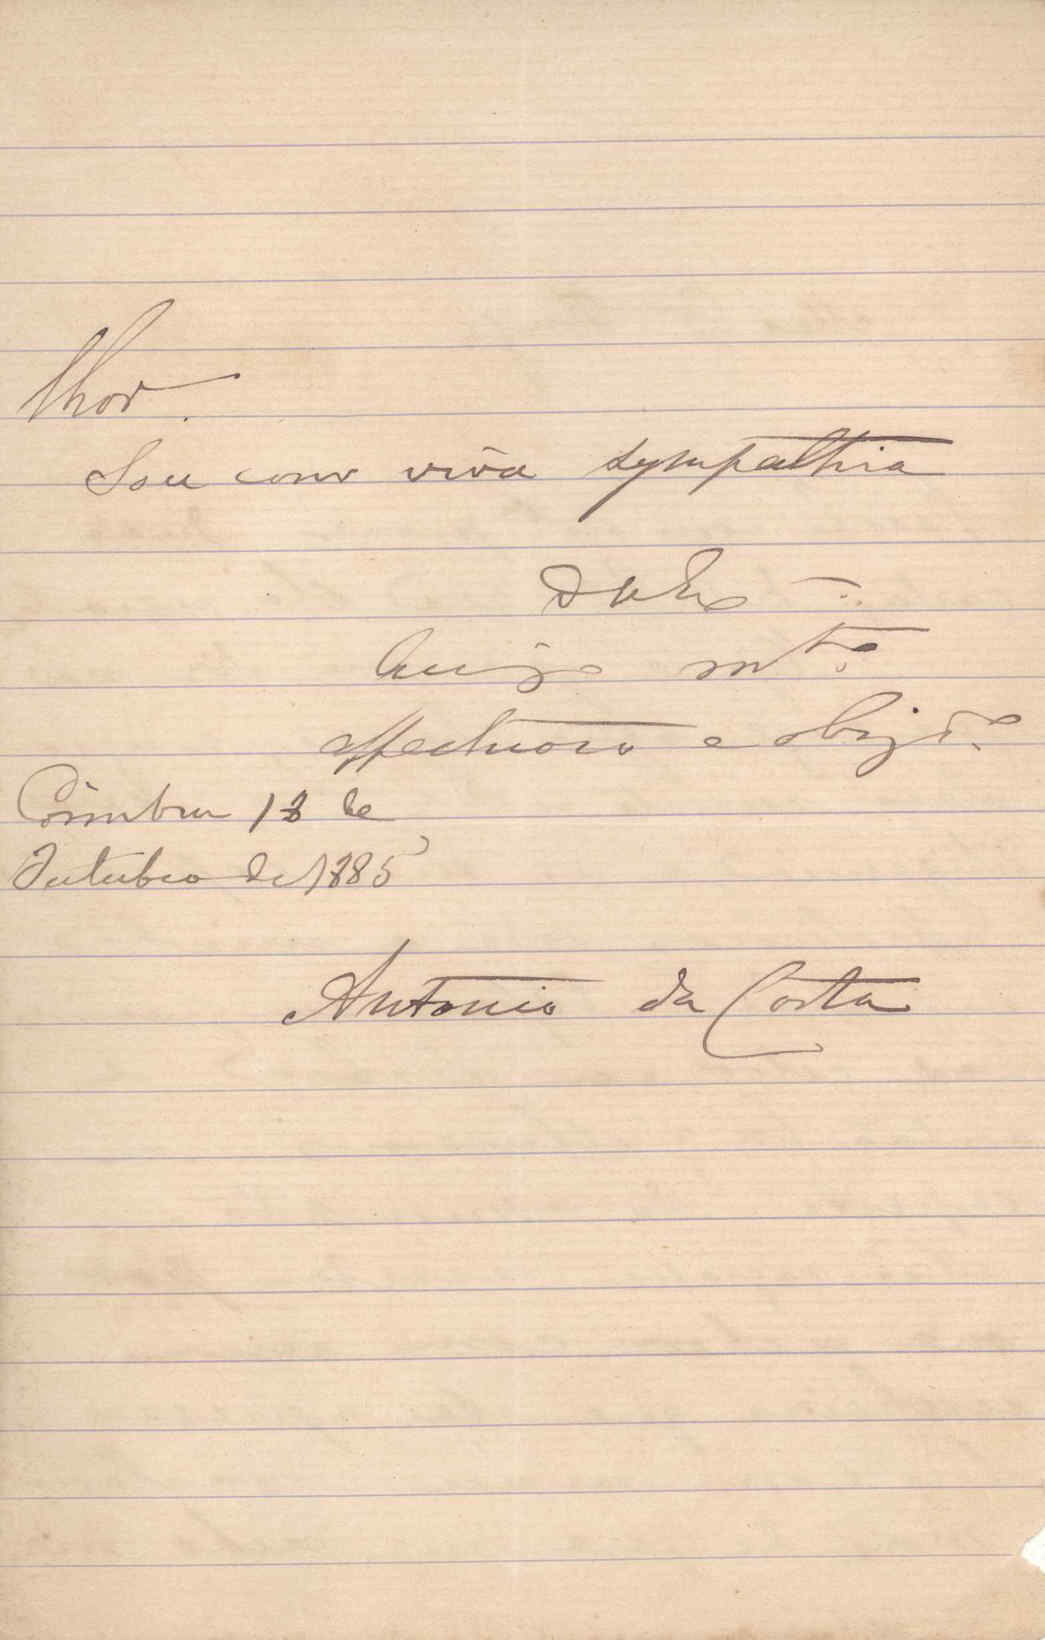 lhor.
Sou com viva sympathia
D V Ex.ª
Amigo mt.º
affectuoso e obrig.do
Coimbra 18 de
Outubro de 1885
Antonio da Costa